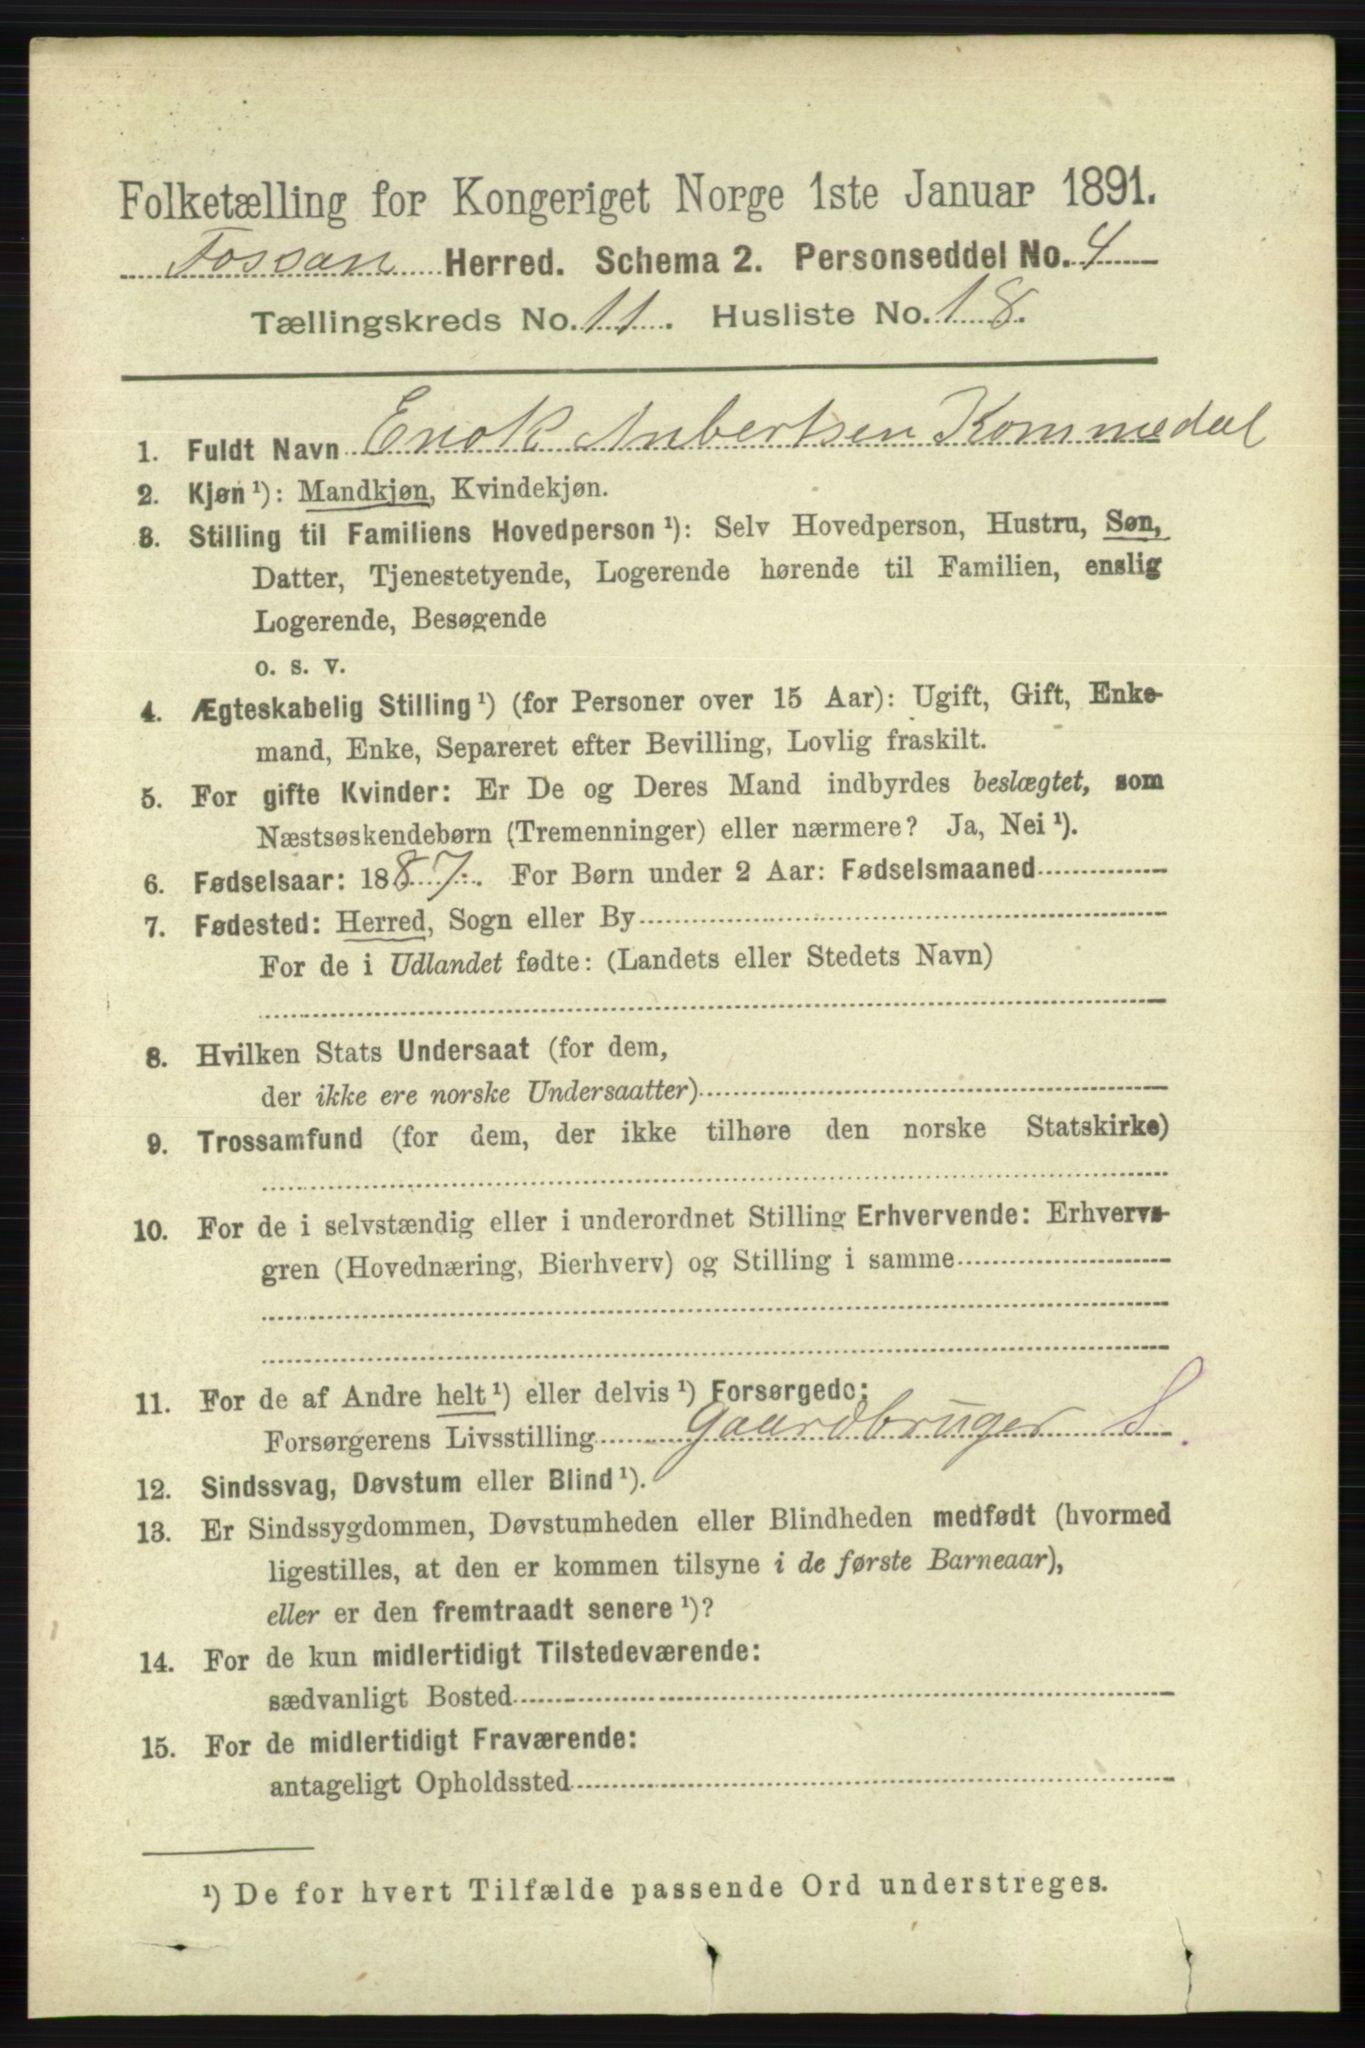 Folketælling for Kongeriget Norge 1ste Januar 1891.
Fossan Herred. Schema 2. Personseddel No. 4
Tællingskreds No. 11. Husliste No. 18.
1. Fuldt Navn Enok Anbertsen Kommedal
2. Kjøn ¹): Mandkjøn, Kvindekjøn.
3. Stilling til Familiens Hovedperson ¹): Selv Hovedperson, Hustru, Søn,
Datter, Tjenestetyende, Logerende hørende til Familien, enslig
Logerende, Besøgende
o. s. v.
4. Ægteskabelig Stilling ¹) (for Personer over 15 Aar): Ugift, Gift, Enke-
mand, Enke, Separeret efter Bevilling, Lovlig fraskilt.
5. For gifte Kvinder: Er De og Deres Mand indbyrdes beslægtet, som
Næstsøskendebørn (Tremenninger) eller nærmere? Ja, Nei ¹).
6. Fødselsaar: 1887. For Børn under 2 Aar: Fødselsmaaned
7. Fødested: Herred, Sogn eller By
For de i Udlandet fødte: (Landets eller Stedets Navn)
8. Hvilken Stats Undersaat (for dem,
der ikke ere norske Undersaatter)
9. Trossamfund (for dem, der ikke tilhøre den norske Statskirke)
10. For de i selvstændig eller i underordnet Stilling Erhvervende: Erhvervs-
gren (Hovednæring, Bierhverv) og Stilling i samme
11. For de af Andre helt ¹) eller delvis ¹) Forsørgede:
Forsørgerens Livsstilling Gaardbruger S.
12. Sindssvag, Døvstum eller Blind ¹).
13. Er Sindssygdommen, Døvstumheden eller Blindheden medfødt (hvormed
ligestilles, at den er kommen tilsyne i de første Barneaar),
eller er den fremtraadt senere ¹)?
14. For de kun midlertidigt Tilstedeværende:
sædvanligt Bosted
15. For de midlertidigt Fraværende:
antageligt Opholdssted
¹) De for hvert Tilfælde passende Ord understreges.